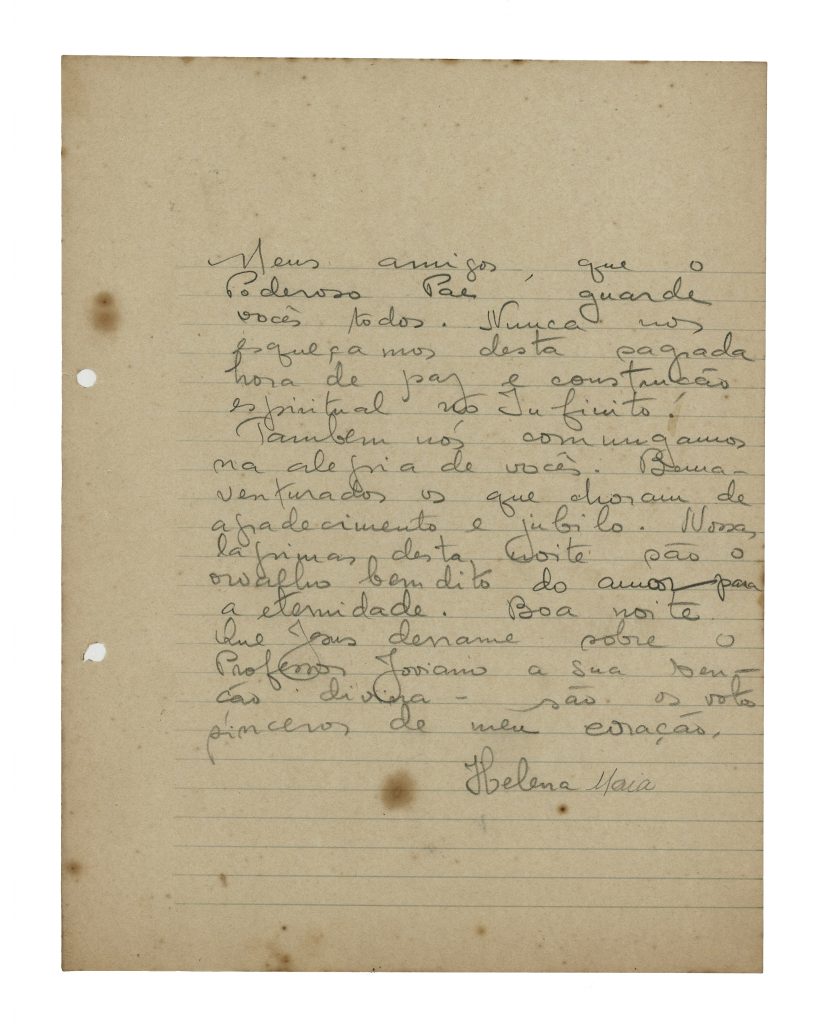 Meus amigos, que o
Poderoso Pae guarde
vocês todos. Nunca nos
esqueçamos desta sagrada
hora de paz e construcção
espiritual no Infinito!
Tambem nós comungamos
na alegria de vocês. Bema-
venturados os que choram de
agradecimento e jubilo. Nossas
lágrimas desta noite são o
orvalho bemdito do amor para
a eternidade. Boa noite
Que Jesus derrame sobre o
Professor Joviano a sua ben-
ção divina - são os votos
sinceros de meu coração.
Helena Maia